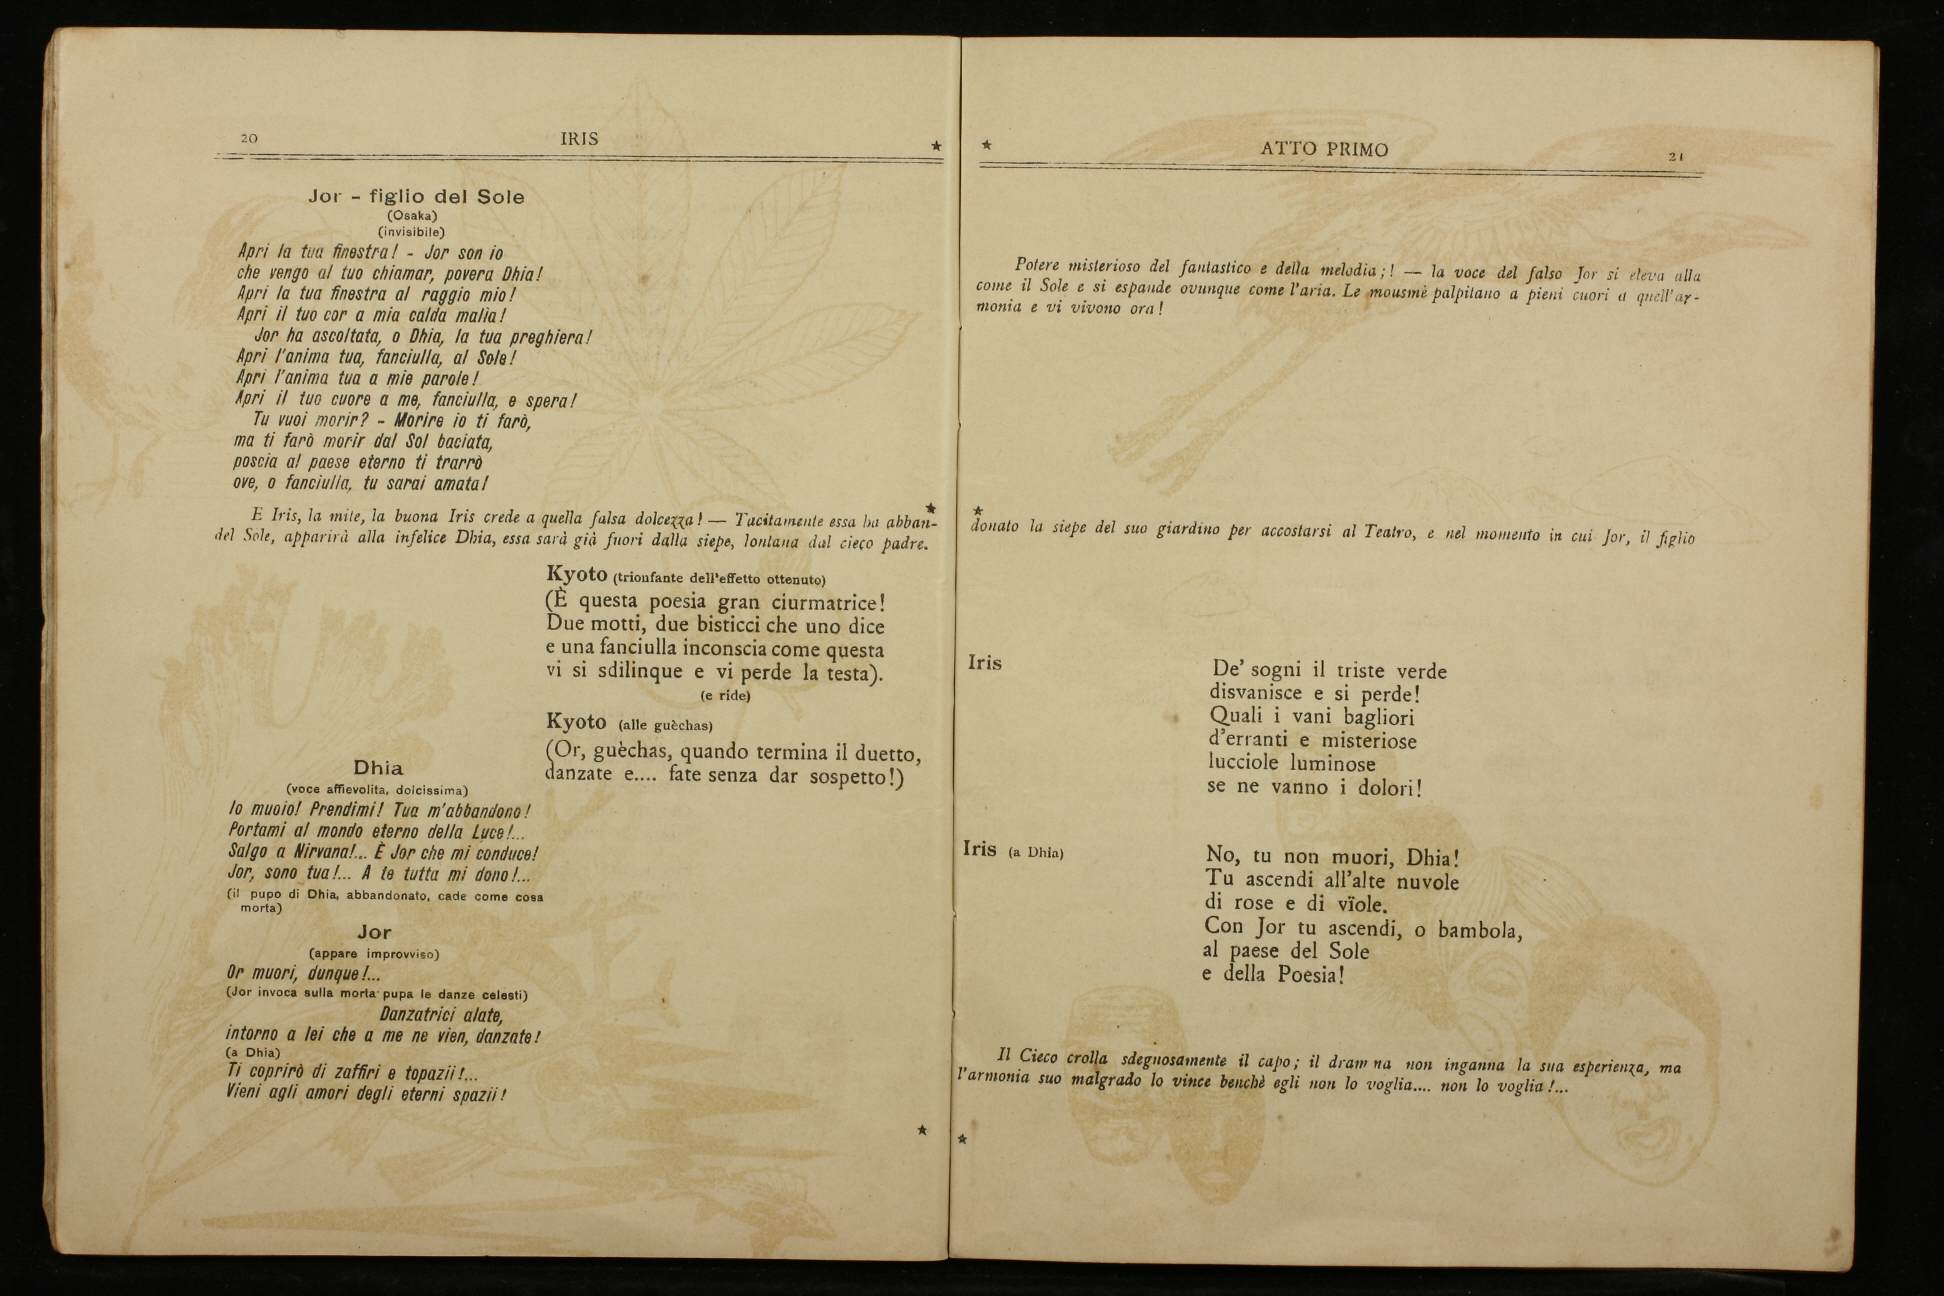 20
IRIS
★
Jor - figlio del Sole
(Osaka)
(invisibile)
Apri la tua finestra! - Jor son io
che vengo al tuo chiamar, povera Dhia!
Apri la tua finestra al raggio mio!
Apri il tuo cor a mia calda malia!
Jor ha ascoltata, o Dhia, la tua preghiera!
Apri l'anima tua, fanciulla, al Sole!
Apri l'anima tua a mie parole!
Apri il tuo cuore a me, fanciulla, e spera!
Tu vuoi morir? - Morire io ti farò,
ma ti farò morir dal Sol baciata,
poscia al paese eterno ti trarrò
ove, o fanciulla, tu sarai amata!
★
E Iris, la mite, la buona Iris crede a quella falsa dolcezza! — Tacitamente essa ha abban-
del Sole, apparirà alla infelice Dhia, essa sarà già fuori dalla siepe, lontana dal cieco padre.
Kyoto (trionfante dell'effetto ottenuto)
(È questa poesia gran ciurmatrice!
Due motti, due bisticci che uno dice
e una fanciulla inconscia come questa
vi si sdilinque e vi perde la testa).
(e ride)
Kyoto (alle guèchas)
(Or, guèchas, quando termina il duetto,
danzate e.... fate senza dar sospetto!)
Dhia
(voce affievolita, dolcissima)
Io muoio! Prendimi! Tua m'abbandono!
Portami al mondo eterno della Luce!...
Salgo a Nirvana!... È Jor che mi conduce!
Jor, sono tua!... A te tutta mi dono!...
(il pupo di Dhia, abbandonato, cade come cosa
morta)
Jor
(appare improvviso)
Or muori, dunque!...
(Jor invoca sulla morta pupa le danze celesti)
Danzatrici alate,
intorno a lei che a me ne vien, danzate!
(a Dhia)
Ti coprirò di zaffiri e topazii!...
Vieni agli amori degli eterni spazii!
★
★
ATTO PRIMO
21
Potere misterioso del fantastico e della melodia;! — la voce del falso Jor si eleva alla
come il Sole e si espande ovunque come l'aria. Le mousmè palpitano a pieni cuori a quell'ar-
monia e vi vivono ora!
★
donato la siepe del suo giardino per accostarsi al Teatro, e nel momento in cui Jor, il figlio
Iris
De' sogni il triste verde
disvanisce e si perde!
Quali i vani bagliori
d'erranti e misteriose
lucciole luminose
se ne vanno i dolori!
Iris (a Dhia)
No, tu non muori, Dhia!
Tu ascendi all'alte nuvole
di rose e di vïole.
Con Jor tu ascendi, o bambola,
al paese del Sole
e della Poesia!
Il Cieco crolla sdegnosamente il capo; il dram na non inganna la sua esperienza, ma
l'armonia suo malgrado lo vince benchè egli non lo voglia.... non lo voglia!...
★